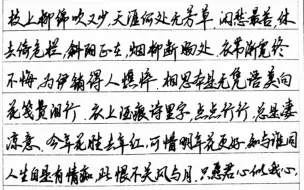 枝上柳绵吹又少，天涯何处无芳草。闲愁最苦，休
去倚危栏，斜阳正在，烟柳断肠处。衣带渐宽终
不悔，为伊消得人憔悴。相思本是无凭语，莫向
花笺费泪行。衣上酒痕诗里字，点点行行，总是凄
凉意。今年花胜去年红，可惜明年花更好，知与谁同
人生自是有情痴，此恨不关风与月。只愿君心似我心